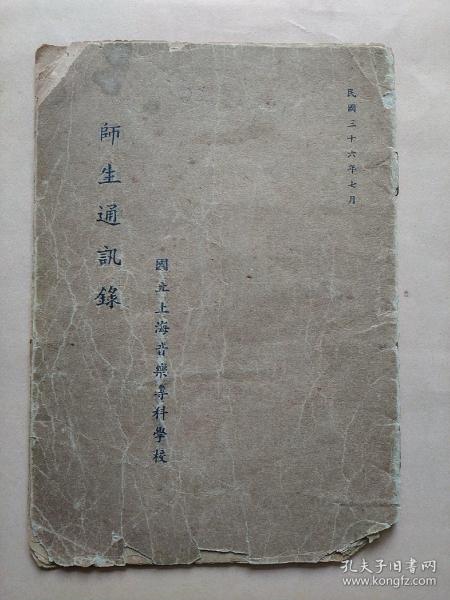 民國三十六年七月
國立上海音樂專科學校
師生通訊錄
孔夫子旧书网
www.kongfz.com